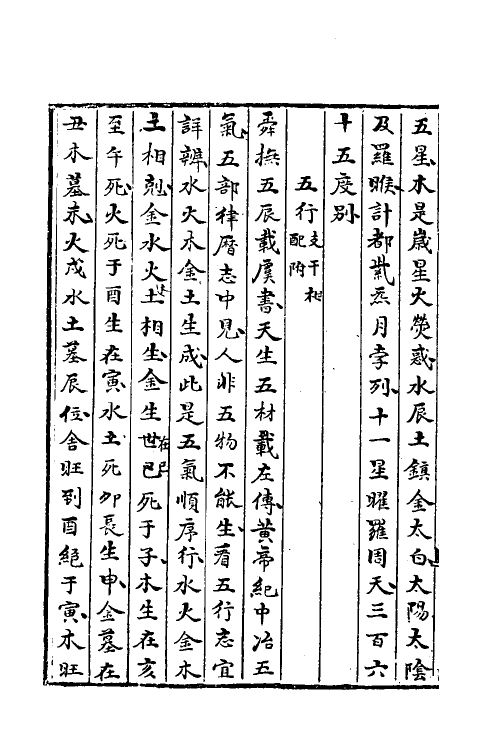 五星木是嵗星火熒惑水辰土鎮金太白太陽太陰
及羅睺計都紫炁月孛列十一星曜羅周天三百六
十五度别
五行支干相配附
舜撫五辰載虞書天生五材載左傳黄帝紀中冶五
氣五部律暦志中見人非五物不能生看五行志宜
詳辨水火木金土生成此是五氣順序行水火金木
土相剋金水火土相生金生世在巳已死于子木生在亥
至午死火死于酉生在寅水土死卯長生申金墓在
丑木墓未火戌水土墓辰位舍旺到酉絶于寅木旺